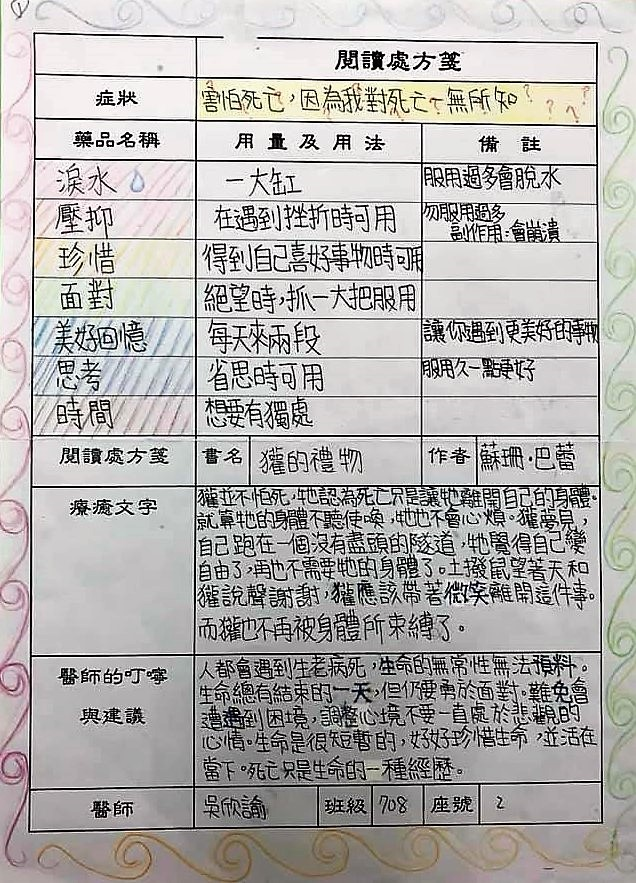 ①
閱讀處方箋
症狀 害怕死亡,因為我對死亡無所知???
藥品名稱 用量及用法 備註
淚水 一大缸 服用過多會脫水
壓抑 在遇到挫折時可用 勿服用過多
副作用:會崩潰
珍惜 得到自己喜好事物時可用
面對 絕望時,抓一大把服用
美好回憶 每天來兩段 讓你遇到更美好的事物
思考 省思時可用 服用久一點更好
時間 想要有獨處
閱讀處方箋 書名 獾的禮物 作者 蘇珊·巴蕾
療癒文字
獾並不怕死,牠認為死亡只是讓牠離開自己的身體。
就算牠的身體不聽使喚,牠也不會心煩。獾夢見,
自己跑在一個沒有盡頭的隧道,牠覺得自己變
自由了,再也不需要牠的身體了。土撥鼠望著天和
獾說聲謝謝,獾應該帶著微笑離開這件事。
而獾也不再被身體所束縛了。
醫師的叮嚀
與建議
人都會遇到生老病死,生命的無常性無法預料。
生命總有結束的一天,但仍要勇於面對。難免會
遭遇到困境,調整心境不要一直處於悲觀的
心情。生命是很短暫的,好好珍惜生命,並活在
當下。死亡只是生命的一種經歷。
醫師 吳欣諭 班級 708 座號 2